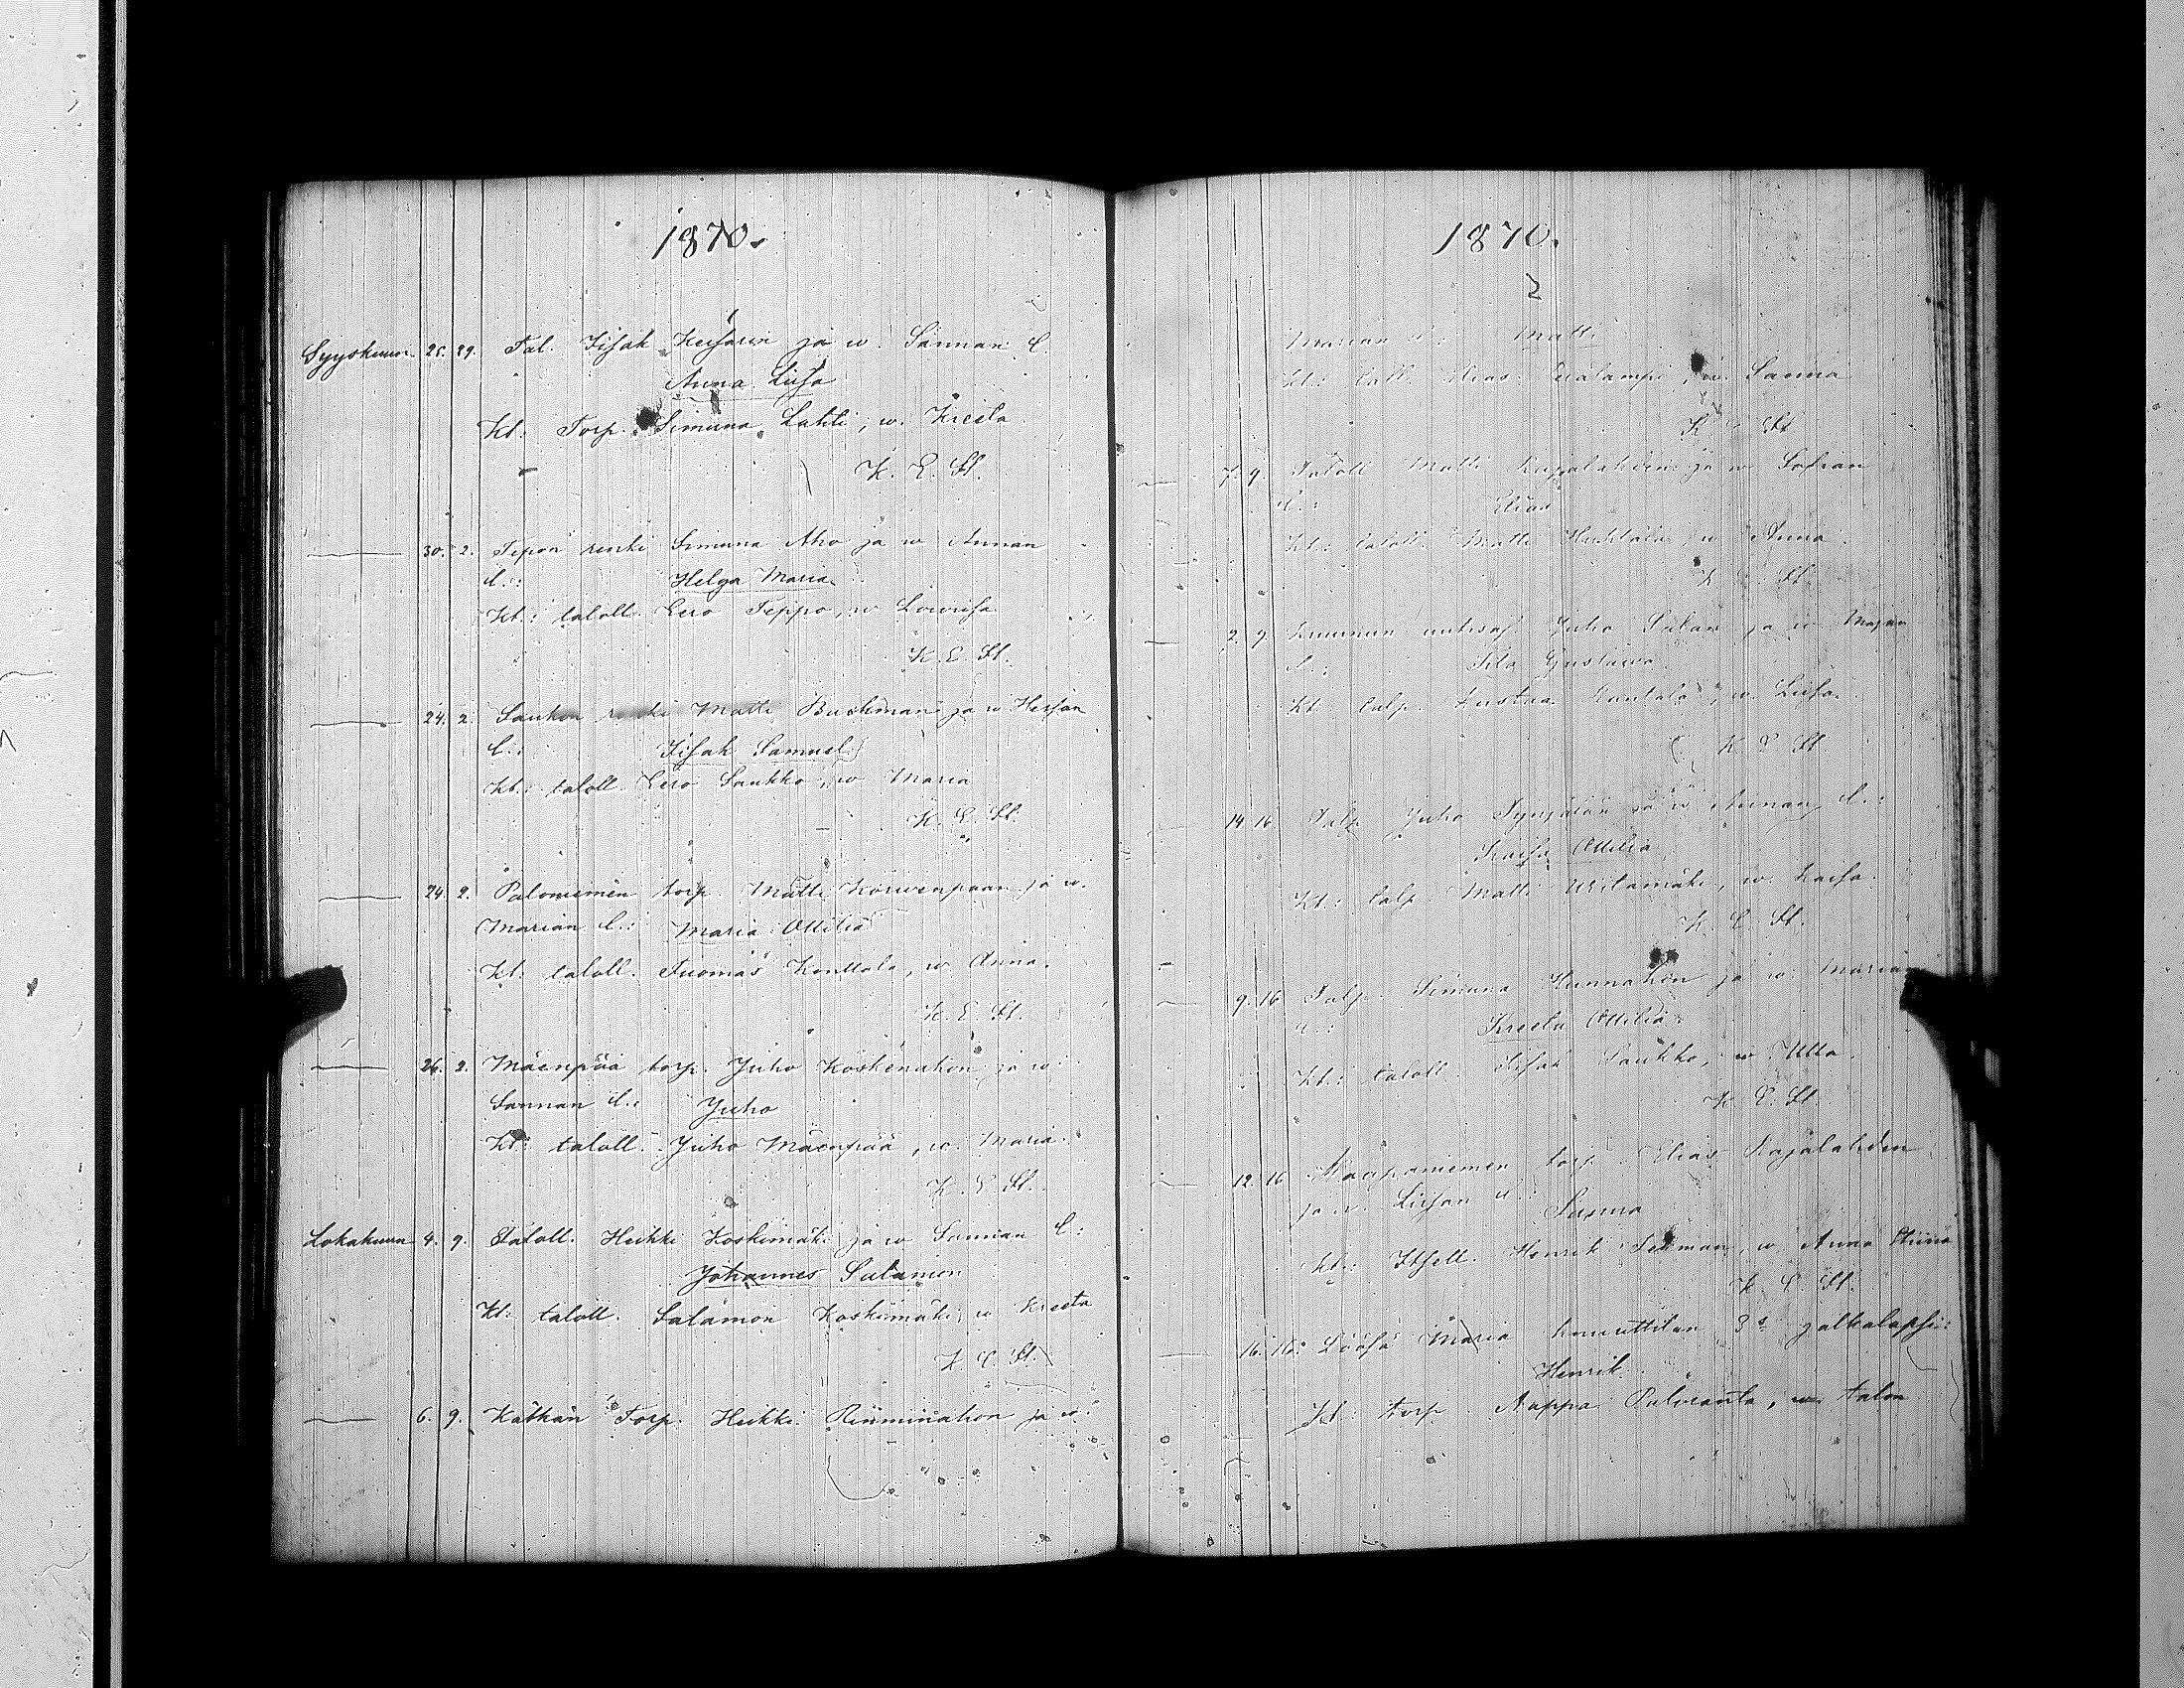 1870.
Syyskuun 25. 29. Tal. Iisak Keisarin ja w. Sannan l.
Anna Liisa
Kt: Torp. Simuna Lahti, w. Kreeta
K. E. St.
30. 2. Tepon renki Simuna Aho ja w Annan
l.: Helga Maria
Kt.: taloll. Eero Teppo, w Lowiisa
K. E. St.
24. 2. Saukon renki Matti Buckman ja w
l.: Iisak Samuel
Kt.: taloll. Eero Saukko, w Maria
K. E. St.
24. 2. Paloniemen torp. Matti Korwenpään ja w.
Marian l.: Maria Ottilia
Kt: taloll. Tuomas Konttola, w. Anna.
K. E. St.
26. 2. Mäenpää torp. Juho Koskenahon ja w
Sannan l.: Juho
Kt: taloll. Juho Mäenpää, w. Maria.
K. E. St.
Lokakuun 4. 9. Taloll. Heikki Koskimäki ja w Sannan l:
Johannes Salamon
Kt: taloll. Salamon Koskimäki, w Kreeta
K. E. St.
6. 9. Kätkän Torp. Heikki Rinminahon ja w.
1870.
Marian l: Matti
Kt.: tall. Elias w. Sanna
K. E. St.
7. 9. Taloll Matti ja w Sofian
l.: Elias
Kt.: taloll. Matti Huhtala, w Anna
K. E. St.
2. 9. Juho Salan ja w Majan
l.: Gustawa
Kt talp. Kustaa w. Liisa.
K. E. St.
14. 16 Talp Juho ja w Annan l.:
Kaisa Ottilia
Kt.: talp. Matti w. Kaisa.
K. E. St.
9. 16 Talp. Simuna Hunnakon ja w. Marian
l.: Kreeta Ottilia
Kt.: taloll Iisak Saukko, w. Ulla.
K. E. St.
12. 16 Haapaniemen torp. Elias Rajalahden
ja w. Liisan l: Sanna
Kt.: Itsell. Henrik w. Anna Stiina
K. E. St.
16. 16. Maria jalkalapsi:
Henrik.
Kt: torp. Nappa Paloranta, w talon